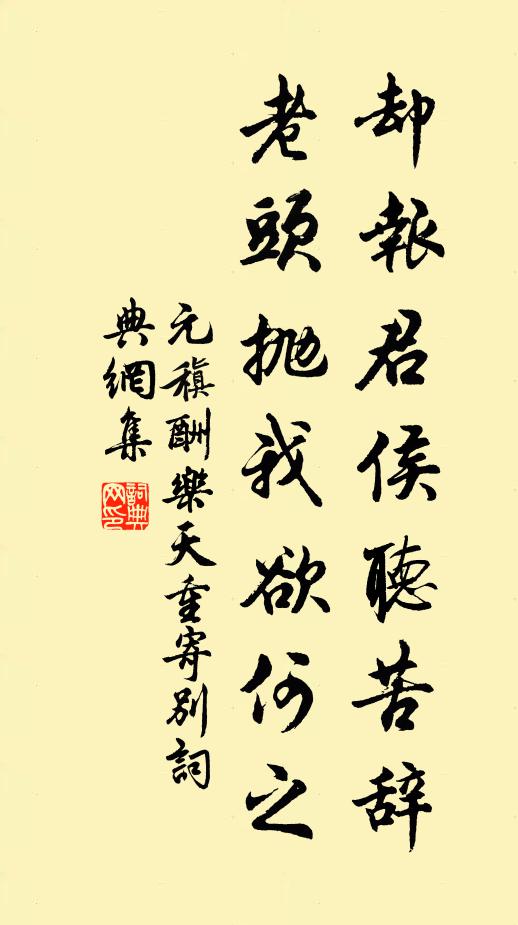 却報君侯聽苦辞
老頭抛我欲何之
元稹酬樂天重寄別詞
典網集
詞典網印